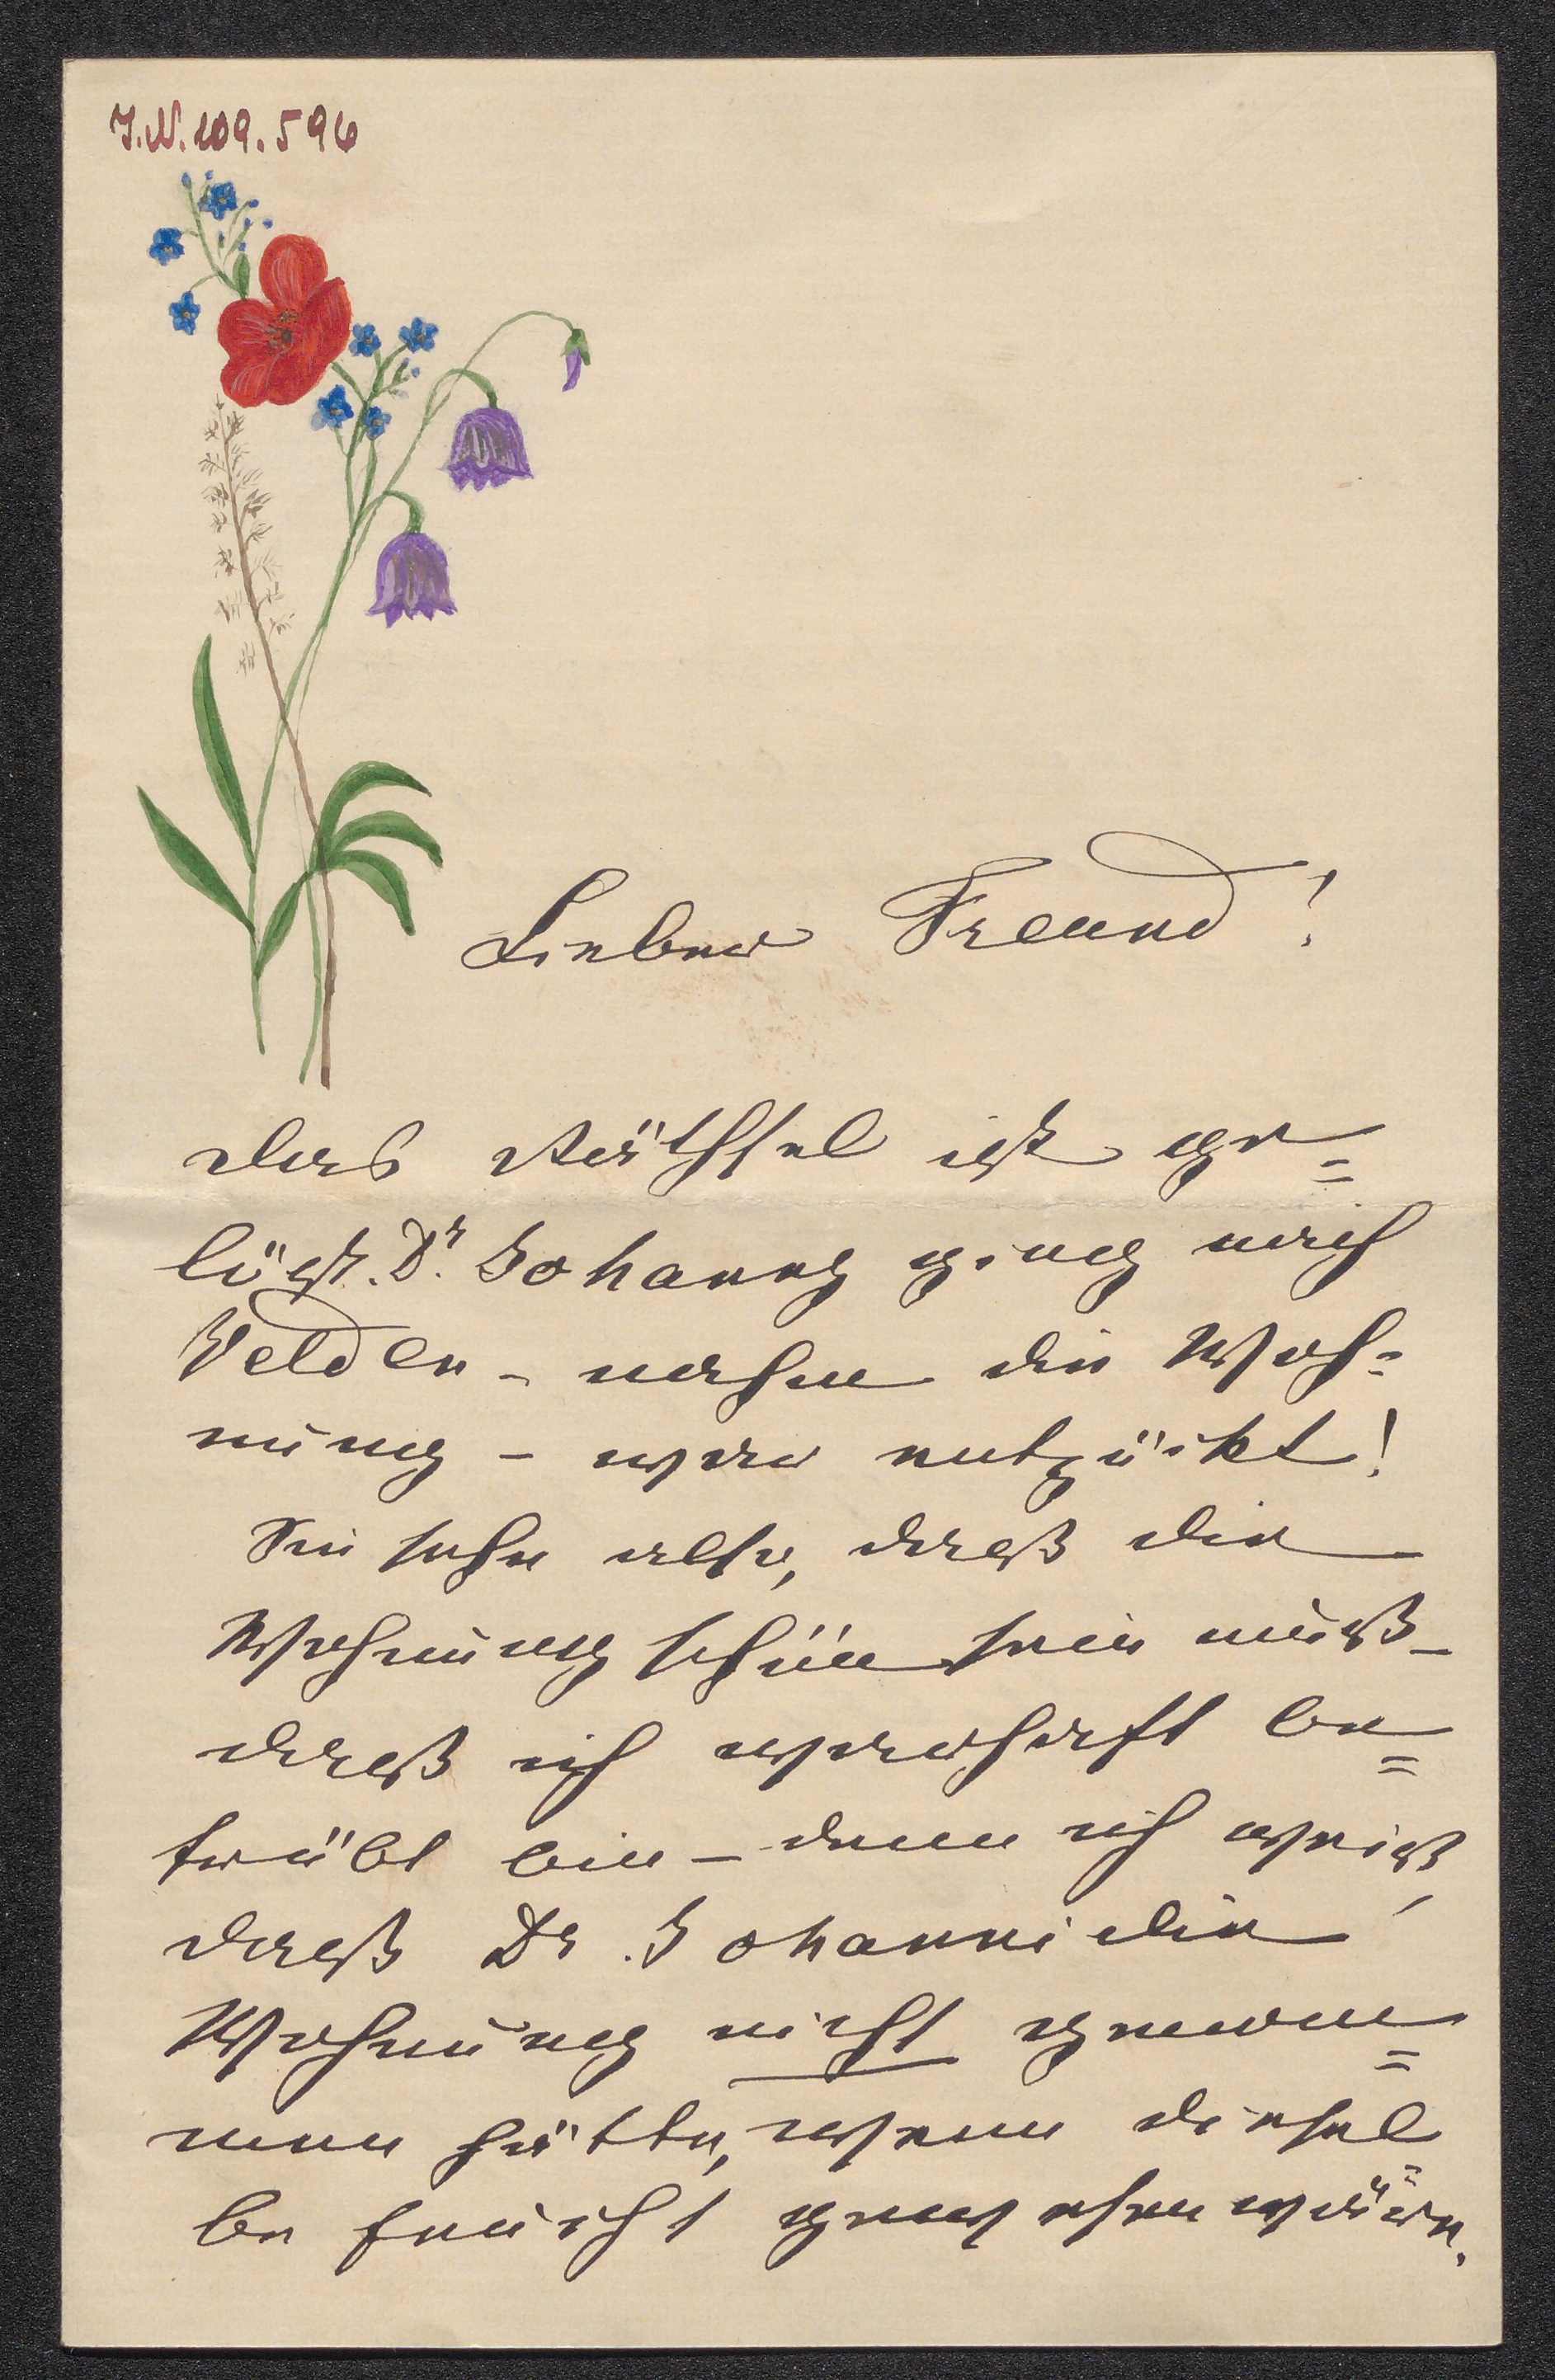 J.N. 109.596
Lieber Freund!
das Räthsel ist ge=
löst. Dr. Johanny ging nach
Velden – nahm die Woh=
nung – war entzückt!
Sie sehn also, daß die
Wohnung schön sein muß –
daß ich wahrhaft be=
trübt bin – denn ich weiß,
daß Dr. Johanni die
Wohnung nicht genom=
men hätte, wenn diesel=
be feucht gewesen wäre.